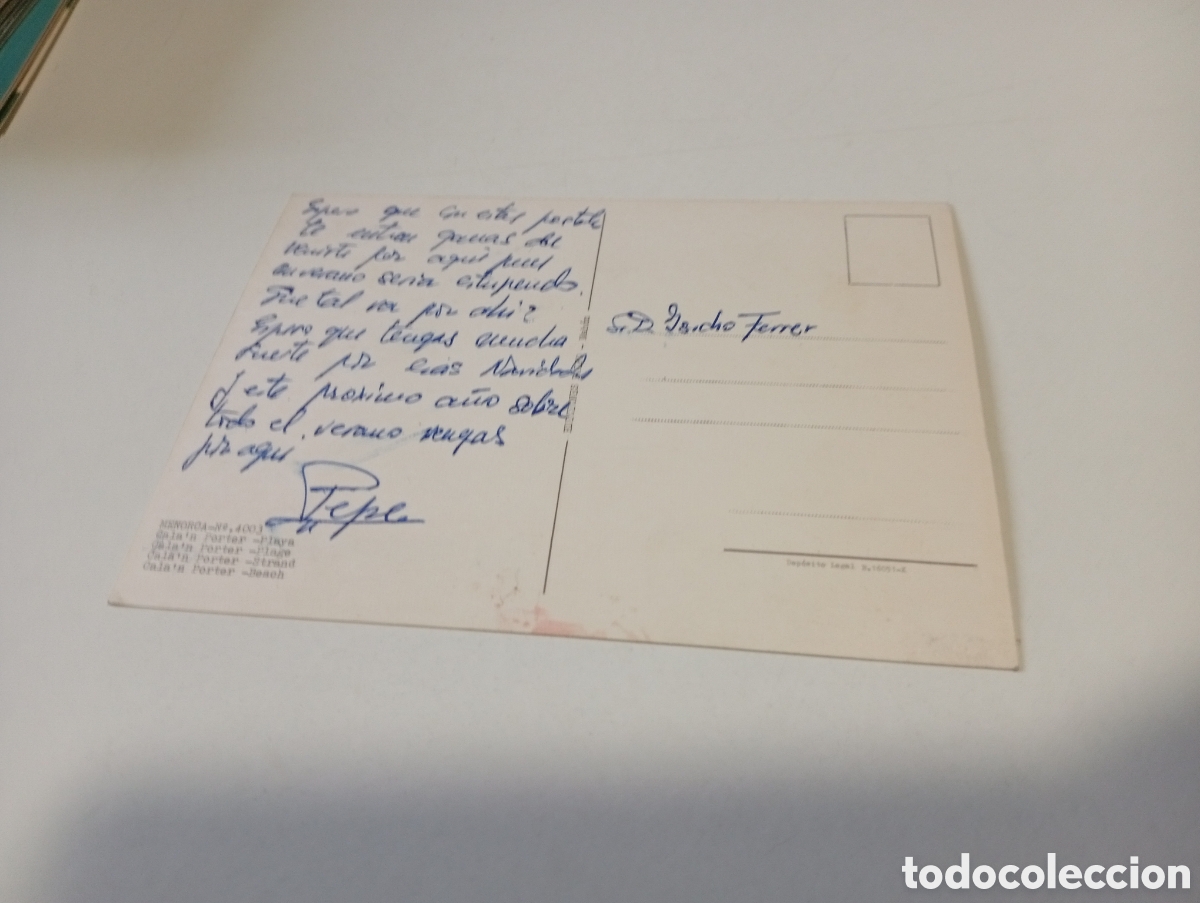 Espero que con estas postales
te entren ganas de
venirte por aquí pues
en verano seria estupendo.
Que tal va por ahi?
Espero que tengas mucha
suerte por esas Navidades
y este proximo año sobre
todo el verano vengas
por aqui
Pepe
MENORCA-Nº.4003
Cala'n Porter -Playa
Cala'n Porter -Plage
Cala'n Porter -Strand
Cala'n Porter -Beach
Sr.D. Isicho Ferrer
Depósito Legal B.18051-X
todocoleccion